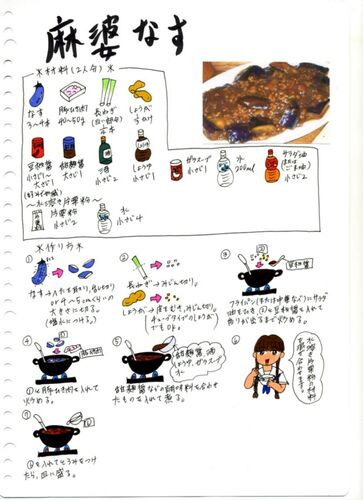 麻婆なす
※材料(2人分)※
なす
3〜4本
豚ひき肉
40〜50g
長ねぎ
しょうが
豆板醤
小さじ1〜
大さじ1
甜麺醤
大さじ1
酒
小さじ2
しょうゆ
小さじ1
ガラスープ
小さじ1
水
200ml
サラダ油
または
ごま油
小さじ2
〜水溶き片栗粉〜
片栗粉
小さじ2
水
小さじ4
※作り方※
①
なす→ヘタを取り、
大きさに切る。
②
長ねぎ→みじん切り。
しょうが→皮をむき、みじん切り。
チューブタイプのしょうが
でもOK。
③
豆板醤
フライパン(または中華なべ)にサラダ
油をひき、②と豆板醤を入れて
香りが出るまで炒める。
④
豚ひき肉
①と豚ひき肉を入れて
炒める。
⑤
甜麺醤、酒
しょうゆ、ガラスープ
水
甜麺醤などの調味料を合わせ
たものを入れて煮る。
⑥
水溶き片栗粉の材料
を混ぜ合わせます。
⑦
⑥を入れてとろみをつけ
たら、皿に盛る。